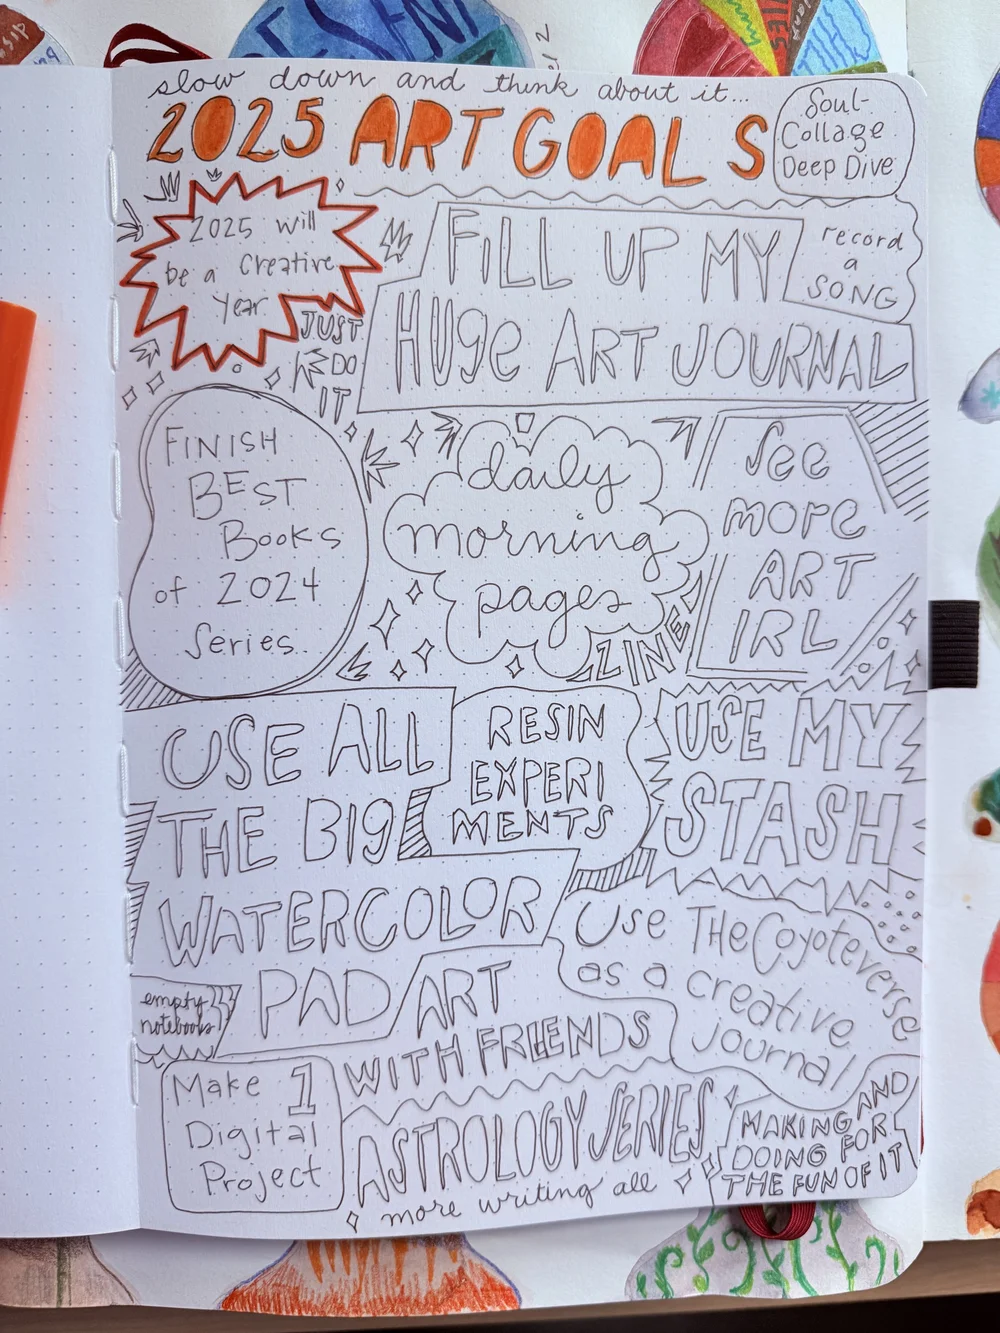 slow down and think about it...
2025 ART GOALS
Soul-
Collage
Deep Dive
2025 will
be a Creative
Year
JUST
DO
IT
FILL UP MY
HUGE ART JOURNAL
record
a
SONG
FINISH
BEST
Books
of 2024
Series
daily
morning
pages
ZINE
See
more
ART
IRL
USE ALL
THE BIG
WATERCOLOR
PAD
RESIN
EXPERI
MENTS
USE MY
STASH
Use THE Coyoteverse
as a creative
journal
empty
notebooks
ART
WITH FRIENDS
Make 1
Digital
Project
ASTROLOGY SERIES
more writing all
MAKING AND
DOING FOR
THE FUN OF IT